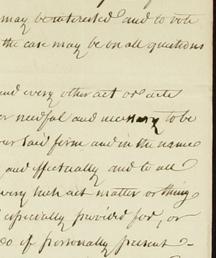 may be interested and to vote
the case may be on all questions
and every other act or acts
needful and necessary to be
our said firm and in the name
and effectually and to all
very such act matter or thing
especially provided for, or
do if personally present -